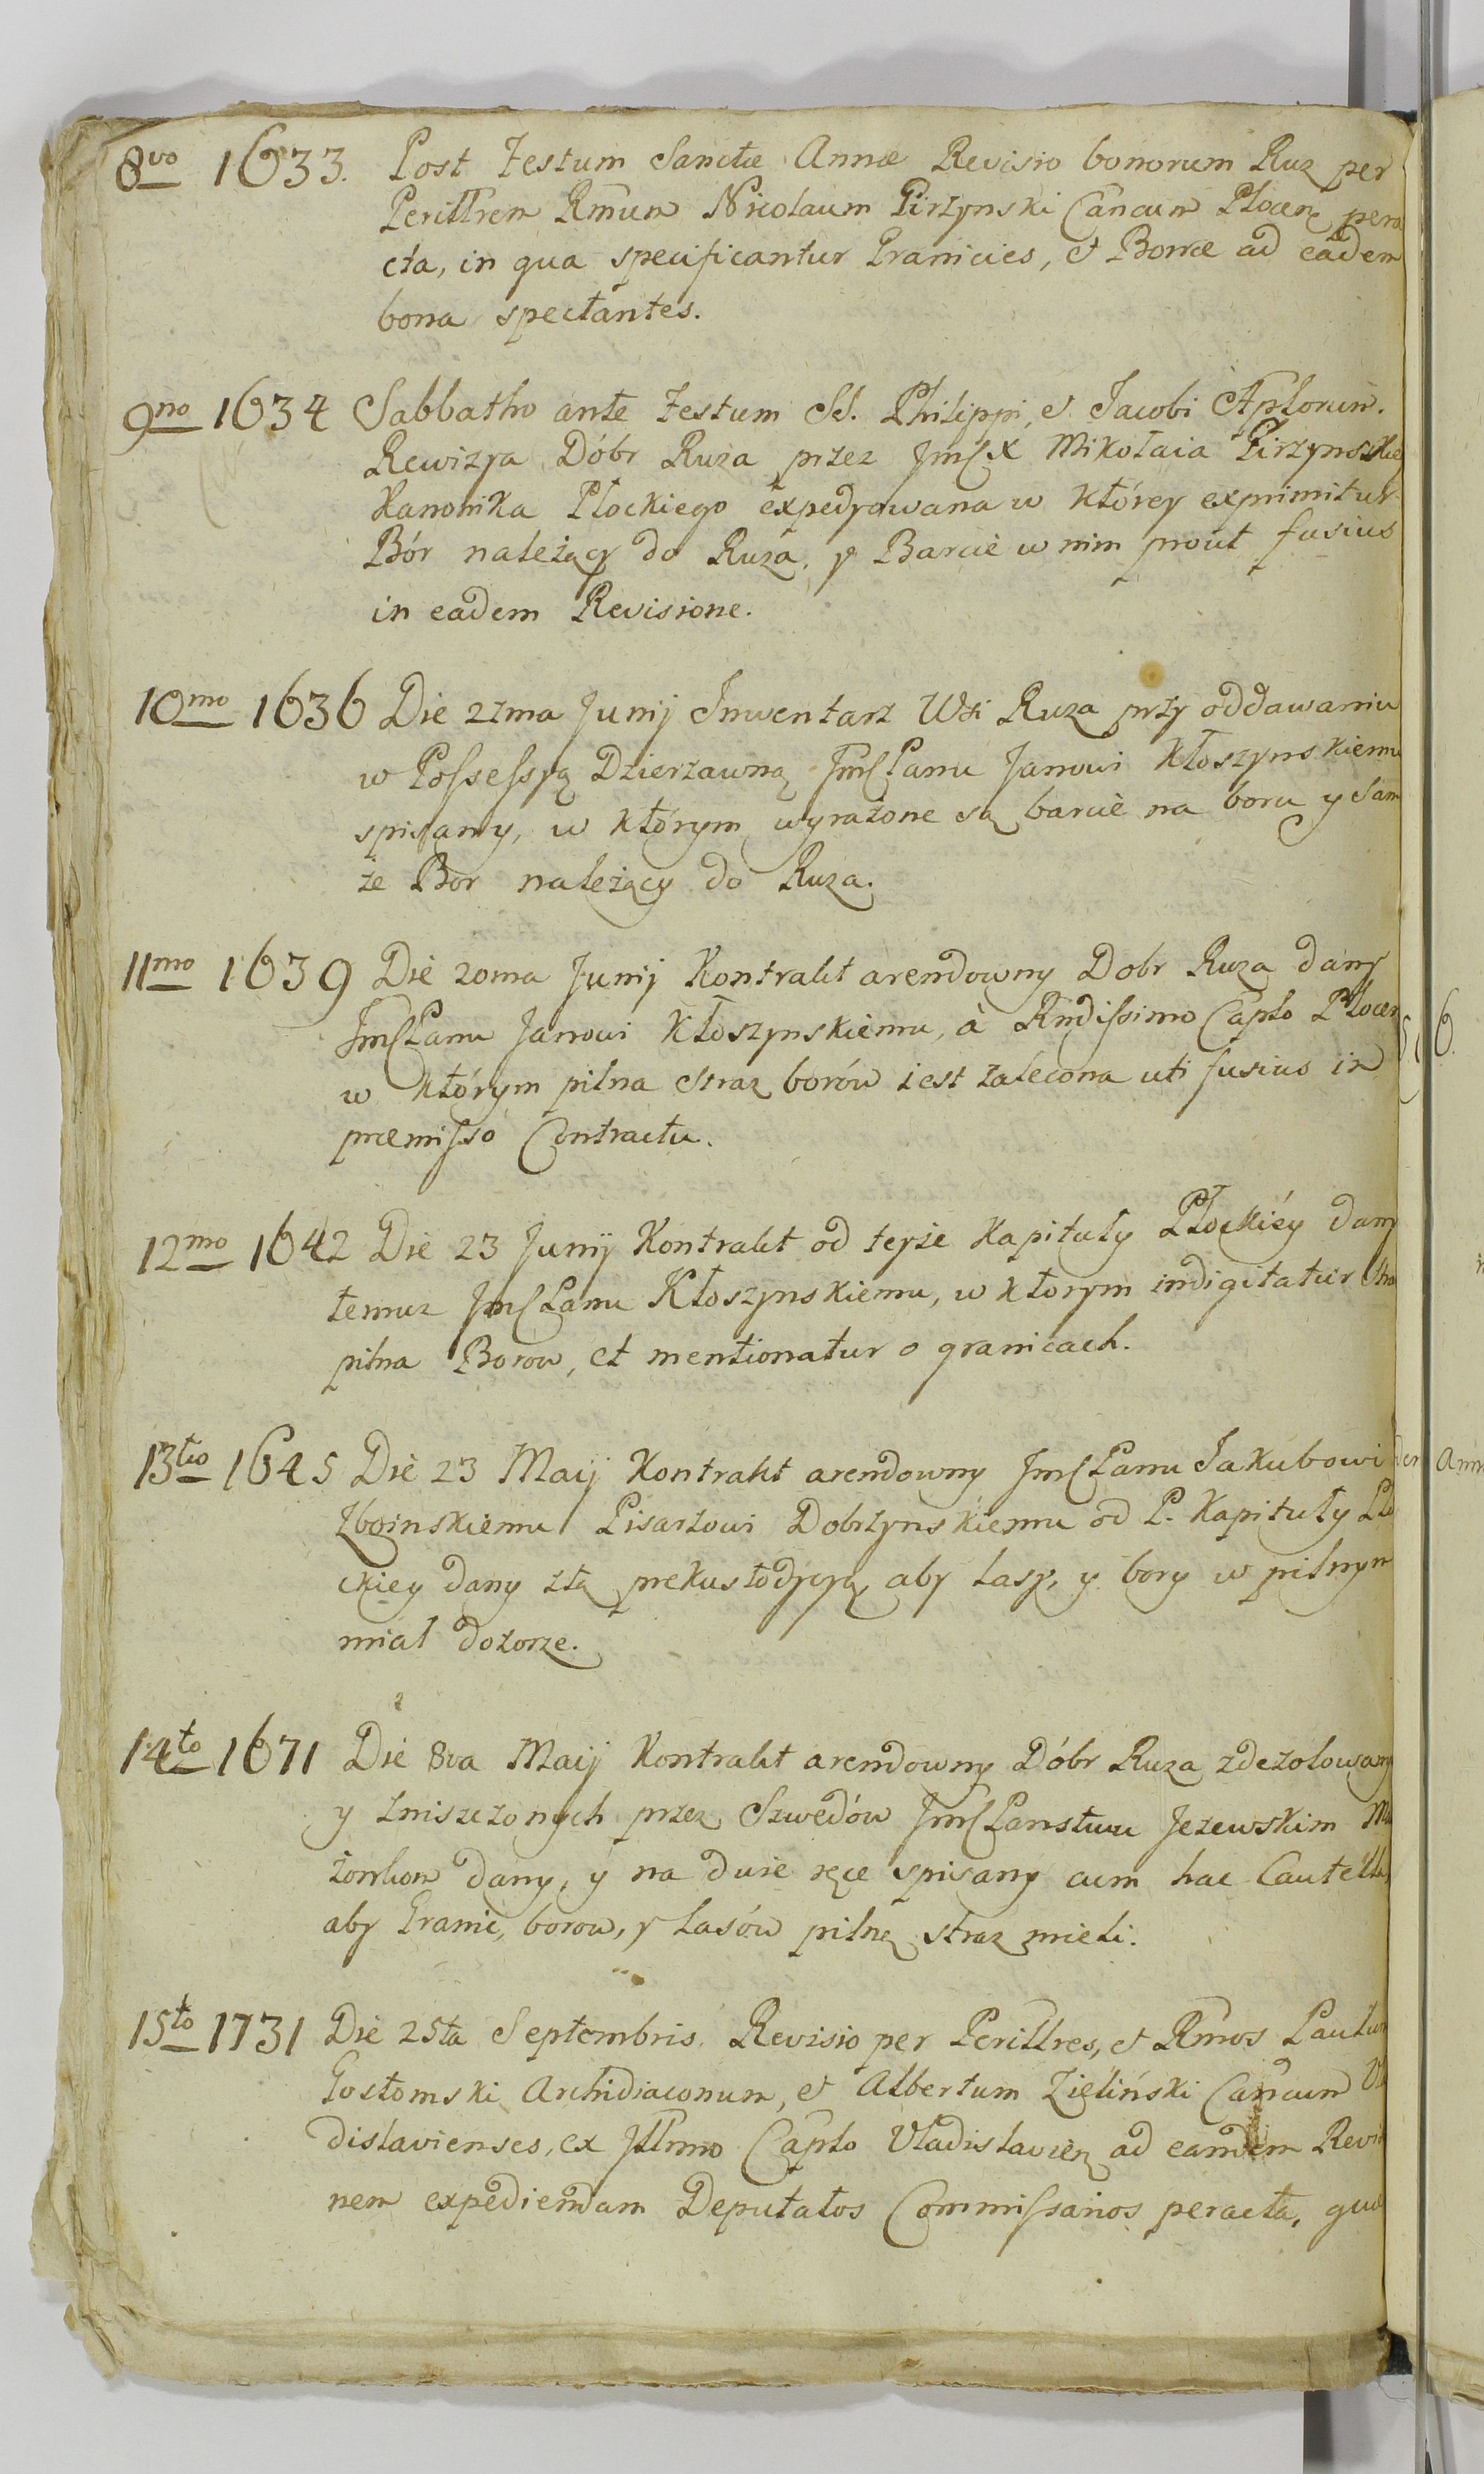 8vo 1633. Post Festum Sanctæ Annæ Revisio bonorum Ruz per
Perillrem Rmum Nicolaum Pirzynski Cancum Plocen pera
cta, in qua specificantur Granicies, et Borræ ad eadem
bona spectantes.
9no 1634 Sabbatho ante Festum SS. Philippi, et Jacobi Aplorum.
Rewizya Dóbr Ruza przez JmſX Mikołaia Pirzynskie
Kanonika Płockiego expedyowana w którey exprimitur
Bór należący do Ruza, y Barcie w nim prout fusius
in eadem Revisione.
10mo 1636 Die 27ma Junij Inwentarz Wsi Ruza przy oddawaniu
w Poſseſsyą Dzierzawną JmſPanu Janowi Kłoszynskiemu
spisany, w którym wyrażone są barcie na boru y sam
że Bor należący do Ruza.
11mo 1639 Die 20ma Junij Kontrakt arendowny Dobr Ruza dany
JmſPanu Janowi Kłoszynskiemu, à Rndiſsimo Caplo Plocen
w którym pilna straz borów iest zalecona uti fusius in
præmiſso Contractu.
12mo 1642 Die 23 Junij Kontrakt od teyże Kapituły Płockiéy dany
temuz JmſPanu Kłoszynskiemu, w ktorym indigitatur stra
pilna Borow, et mentionatur o granicach.
13tio 1645 Die 23 Maij Kontrakt arendowny JmſPanu Jakubowi
Zboinskiemu Pisarzowi Dobrzynskiemu od P. Kapituły Pło
ckiey dany ztą prekustodycyą, aby lasy, y bory w pilnym
miał dozorze.
14to 1671 Die 8va Maij Kontrakt arendowny Dóbr Ruza zdezolowany
y zniszczonych przez Szwedów JmſPanstwu Jeżewskim Ma
żonkom dany, y na dwie ręce spisany cum hac Cautella,
aby Granic, borow, y lasów pilną straz mieli.
15to 1731 Die 25ta Septembris Revisio per Perillres, et Rmos Paulum
Gostomski Archidiaconum, et Albertum Zieliński Cancum Vla
dislavienses, ex Jllmo Caplo Vladislavien ad eandem Revisio
nem expediendam Deputatos Commiſsarios peracta, quæ